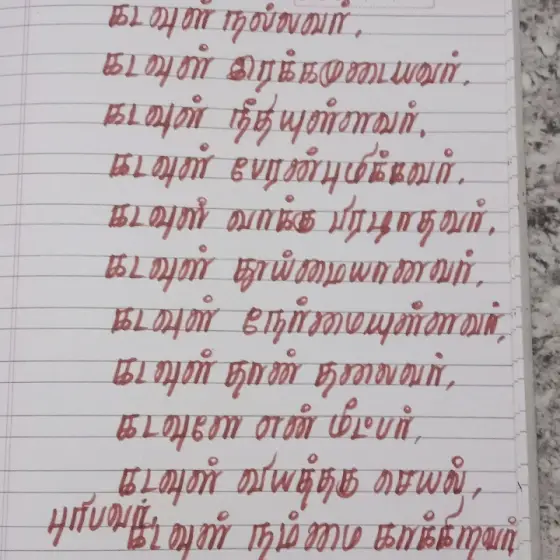 கடவுள் நல்லவர்,
கடவுள் இரக்கமுடையவர்.
கடவுள் நீதியுள்ளவர்.
கடவுள் பேரன்புமிக்கவர்.
கடவுள் வாக்கு பிரழாதவர்.
கடவுள் தூய்மையானவர்.
கடவுள் நேர்மையுள்ளவர்,
கடவுள் தான் தலைவர்,
கடவுளே என் மீட்பர்,
கடவுள் வியத்தகு செயல்,
புரிபவர்,
கடவுள் நம்மை காக்கிறவர்